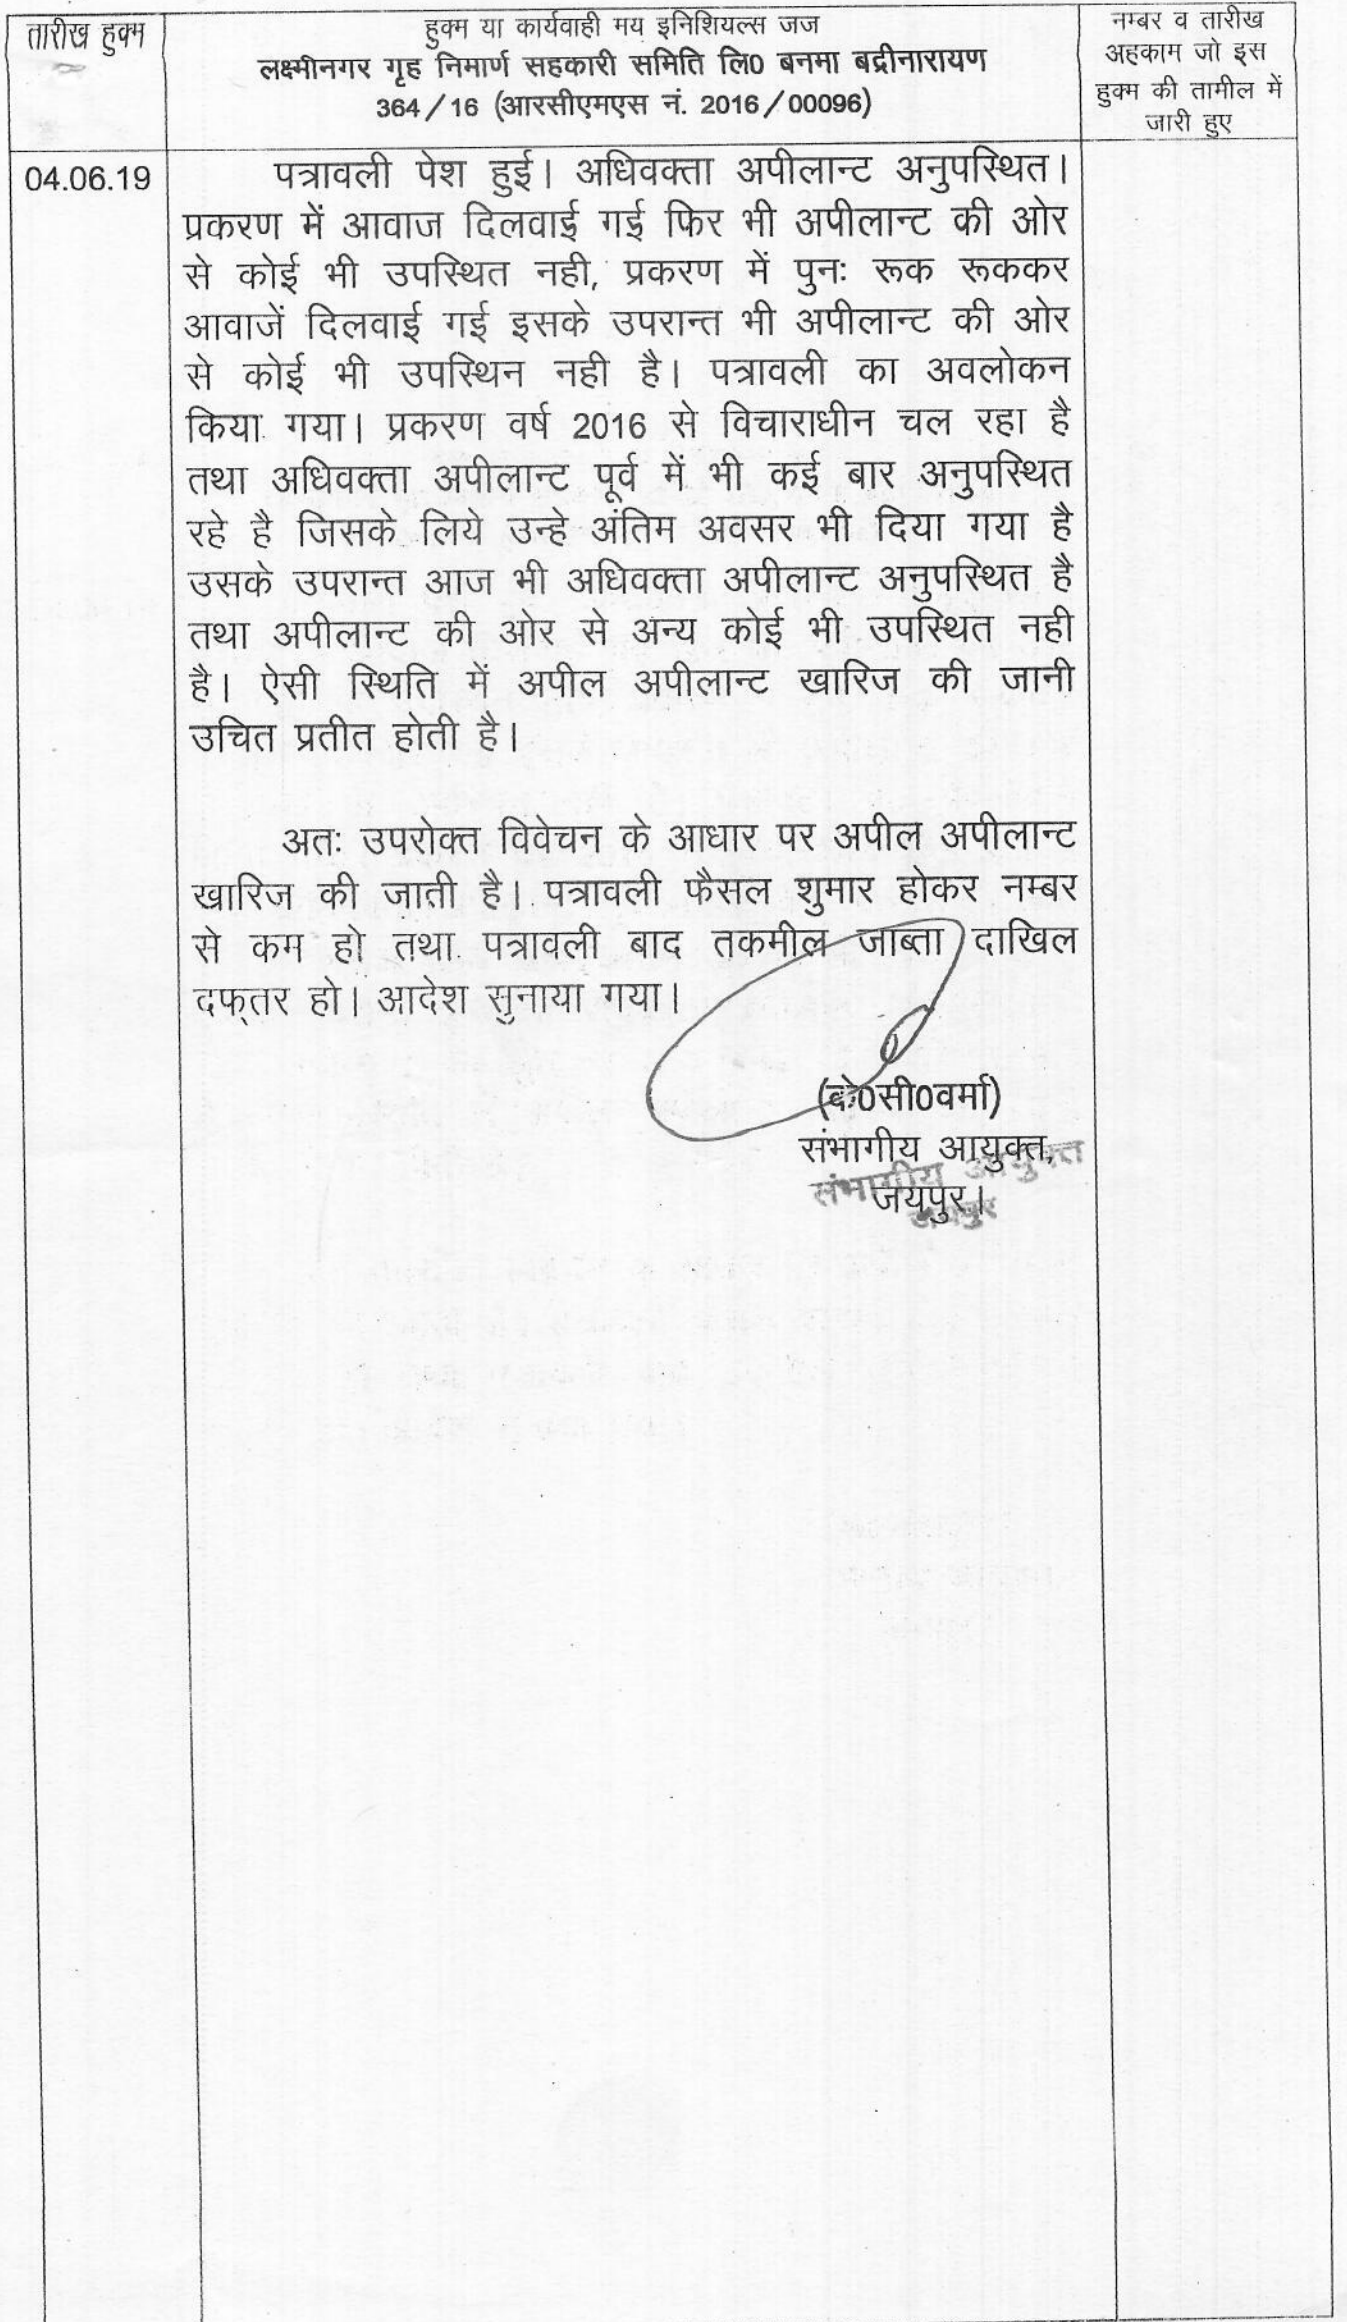 तारीख हुक्म
हुक्म या कार्यवाही मय इनिशियल्स जज
लक्ष्मीनगर गृह निमार्ण सहकारी समिति लि0 बनमा बद्रीनारायण
364/16 (आरसीएमएस नं. 2016/00096)
नम्बर व तारीख
अहकाम जो इस
हुक्म की तामील में
जारी हुए
04.06.19
पत्रावली पेश हुई। अधिवक्ता अपीलान्ट अनुपस्थित।
प्रकरण में आवाज दिलवाई गई फिर भी अपीलान्ट की ओर
से कोई भी उपस्थित नही, प्रकरण में पुनः रूक रूककर
आवाजें दिलवाई गई इसके उपरान्त भी अपीलान्ट की ओर
से कोई भी उपस्थिन नही है। पत्रावली का अवलोकन
किया गया। प्रकरण वर्ष 2016 से विचाराधीन चल रहा है
तथा अधिवक्ता अपीलान्ट पूर्व में भी कई बार अनुपस्थित
रहे है जिसके लिये उन्हे अंतिम अवसर भी दिया गया है
उसके उपरान्त आज भी अधिवक्ता अपीलान्ट अनुपस्थित है
तथा अपीलान्ट की ओर से अन्य कोई भी उपस्थित नही
है। ऐसी स्थिति में अपील अपीलान्ट खारिज की जानी
उचित प्रतीत होती है।
अतः उपरोक्त विवेचन के आधार पर अपील अपीलान्ट
खारिज की जाती है। पत्रावली फैसल शुमार होकर नम्बर
से कम हो तथा पत्रावली बाद तकमील जाब्ता दाखिल
दफ्तर हो। आदेश सुनाया गया।
(के0सी0वर्मा)
संभागीय आयुक्त,
संभागीय आयुक्त
जयपुर।
जयपुर